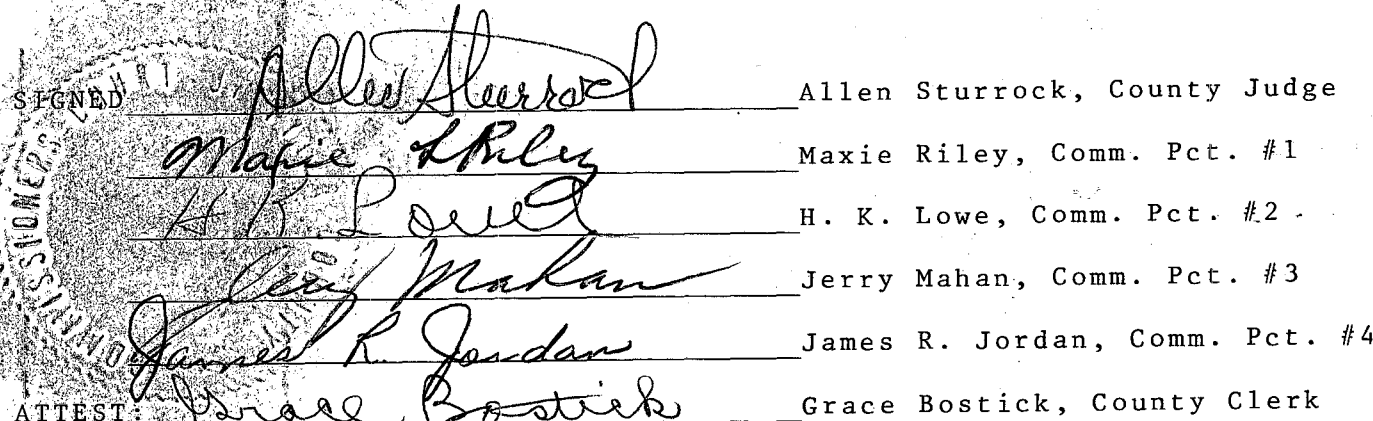 SIGNED Allen Sturrock Allen Sturrock, County Judge
Maxie L Riley Maxie Riley, Comm. Pct. #1
H. K. Lowe H. K. Lowe, Comm. Pct. #2
Jerry Mahan Jerry Mahan, Comm. Pct. #3
James R. Jordan James R. Jordan, Comm. Pct. #4
ATTEST: Grace Bostick Grace Bostick, County Clerk
COMMISSIONERS COURT